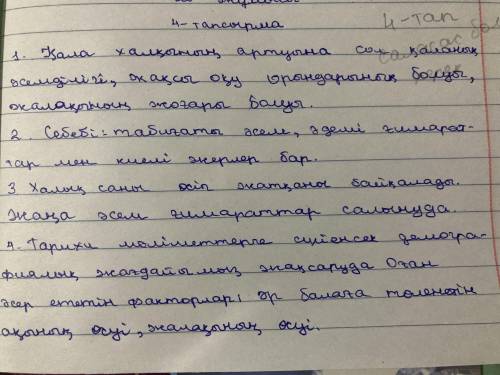 4-тапсырма
4-тап
1. Қала халқының артуына сол қаланың
әсемділігі, жақсы оқу орындарының болуы,
жалақының жоғары болуы.
2 Себебі: табиғаты әсем, әдемі ғимарат-
тар мен киелі жерлер бар.
3 Халық саны өсіп жатқаны байқалады.
Жаңа әсем ғимараттар салынуда.
4. Тарихи мәліметтерге сүйенсек демогра-
фиялық жағдайымыз жақсаруда Оған
әсер ететін факторлар: әр балаға төленетін
ақының өсуі, жалақының өсуі.